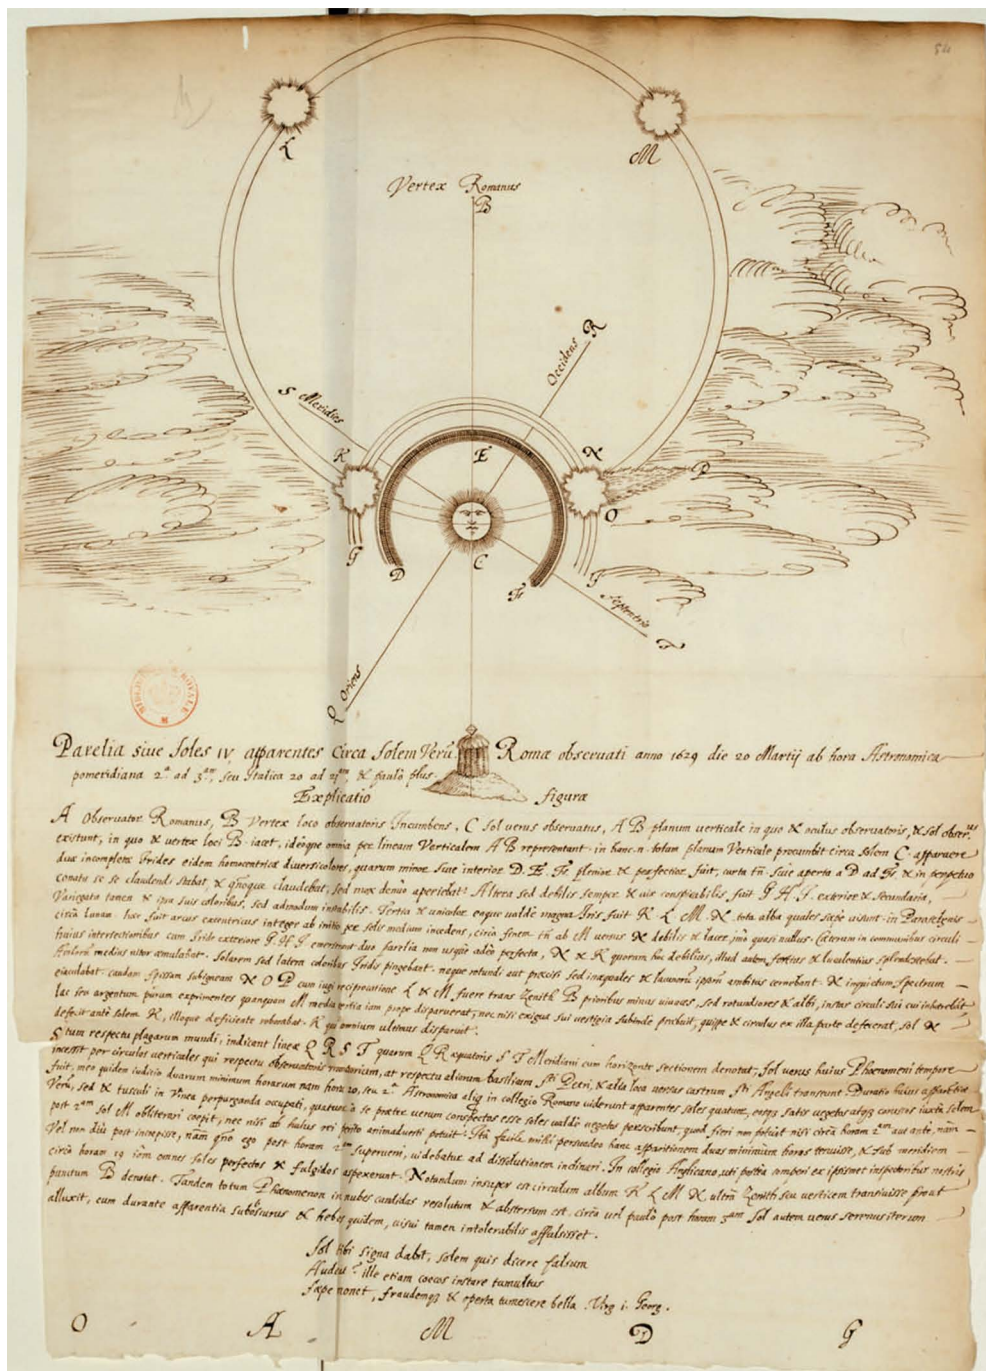 54
L
M
Vertex Romanus
B
Occidens R
S Meridies
K
E
N
P
O
G
D
C
F
I
Septentrio
T
Q Oriens
Parelia siue Soles IV apparentes Circa Solem Verū Romæ obseruati anno 1629 die 20 Martij ab hora Astronomica
pomeridiana 2.ª ad 3.ᵃᵐ, seu Italica 20 ad 21ᵃᵐ, & paulò plus.
Explicatio figuræ
A Obseruator Romanus, B Vertex loco obseruatoris Incumbens, C Sol verus obseruatus, A B planum verticale in quo & oculus obseruatoris, & sol obser.
existunt, in quo & vertex loci B iacet, ideoque omnia per lineam Verticalem A B representant. in hanc. n. totum planum Verticale procumbit circa solem C apparuere
duæ incompletæ Irides eidem homocentricæ diuersicolores, quarum minor siue interior D. E. F. plenior & perfectior fuit, curta tñ. siue aperta a D ad F. & in perpetuo
conatu se se claudendi stabat, & quoque claudebat, sed mox denuo aperiebat. Altera sed debilis semper & uix conspicabilis, fuit G H I. exterior & secundaria,
Variegata tamen & ipsa suis coloribus, sed admodum instabilis. Tertia & unicolor eaque ualde magna Iris fuit K L M. N. tota alba quales sæpe visunt. in Paraselenis
circa lunam. hæc fuit arcus excentricus integer ab initio per solis medium incedens, circa finem tñ ab M versus N debilis & lacer, imo quasi nullus. Cæterum in communibus circuli
huius intersectionibus cum Iride exteriore G. H. I emerserunt duo parelia non usque adeo perfecta, N & K quorum hoc debilius, illud autem fortius & luculentius splendescebat.
Amborum medius nitor æmulabat. Solarem sed latera coloribus Iridis pingebant. neque rotundi aut præcisi sed inæquales & lacunosi ipsorum ambitus cernebant. N inquietum spectrum
eiaculabat caudam spissam subigneam N O P cum iugi reciprocatione L & M fuere trans Zenith B prioribus minus uiuaces, sed rotundiores & albi, instar circuli sui cui inhærebāt
lac seu argentum purum exprimentes quanquam M media tertia iam prope disparuerat, nec nisi exigua sui vestigia subinde præbuit, quippe & circulus ex illa parte defecerat, sol N
defecit ante solem K, illoque deficiente roborabat. K qui omnium ultimus disparuit.
Situm respectu plagarum mundi, indicant lineæ Q R S T quarum Q R Æquatoris S T Meridiani cum horizonte sectionem denotat; Sol verus huius Phænomeni tempore
incessit per circulos verticales qui respectu obseruatoris romani, at respectu aliorum basilicam Sti Petri, & alia loca versus castrum Sti Angeli transeunt. Duratio huius apparitionis
fuit, meo quidem iuditio duarum minimum horarum nam hora 20, seu 2ª Astronomica aliq in collegio Romano viderunt apparentes soles quatuor, eosq; satis uegetos atq; coruscos iuxta solem
Verū, sed & tusculi in Vinea perpurganda occupati, quatuor a se præter uerum conspectos esse soles ualde uegetos perscribunt, quod fieri non potuit nisi circa horam 2am aut ante, nam
post 2am sol M obliterari coepit, nec nisi ab huius rei perito animaduerti potuit. Itā facile mihi persuadeo hanc apparitionem duas minimum horas tenuisse, & sub meridiem
Vel non diu post incepisse, nam quo ego post horam 2am superueni, videbatur ad dissolutionem inclinari. In collegio Anglicano, uti postea comperi ex ipsismet inspectoribus nostris
circa horam 19 iam omnes soles perfectos & fulgidos aspexerunt. Notandum insuper est circulum album K L M N ultra Zenith seu verticem transiuisse prout
punctum B denotat. Tandem totum Phænomenon in nubes candidas resolutum & abstersum est. circa vel paulo post horam 3am Sol autem uerus serenus iterum
alluxit, cum durante apparentia subobscurus & hebes quidem, uisui tamen intolerabilis affulsisset.
Sol tibi signa dabit, solem quis dicere falsum
Audeat? ille etiam coecos instare tumultus
sæpe monet, fraudemq; & operta tumescere bella. Virg i. Georg.
O A M D G